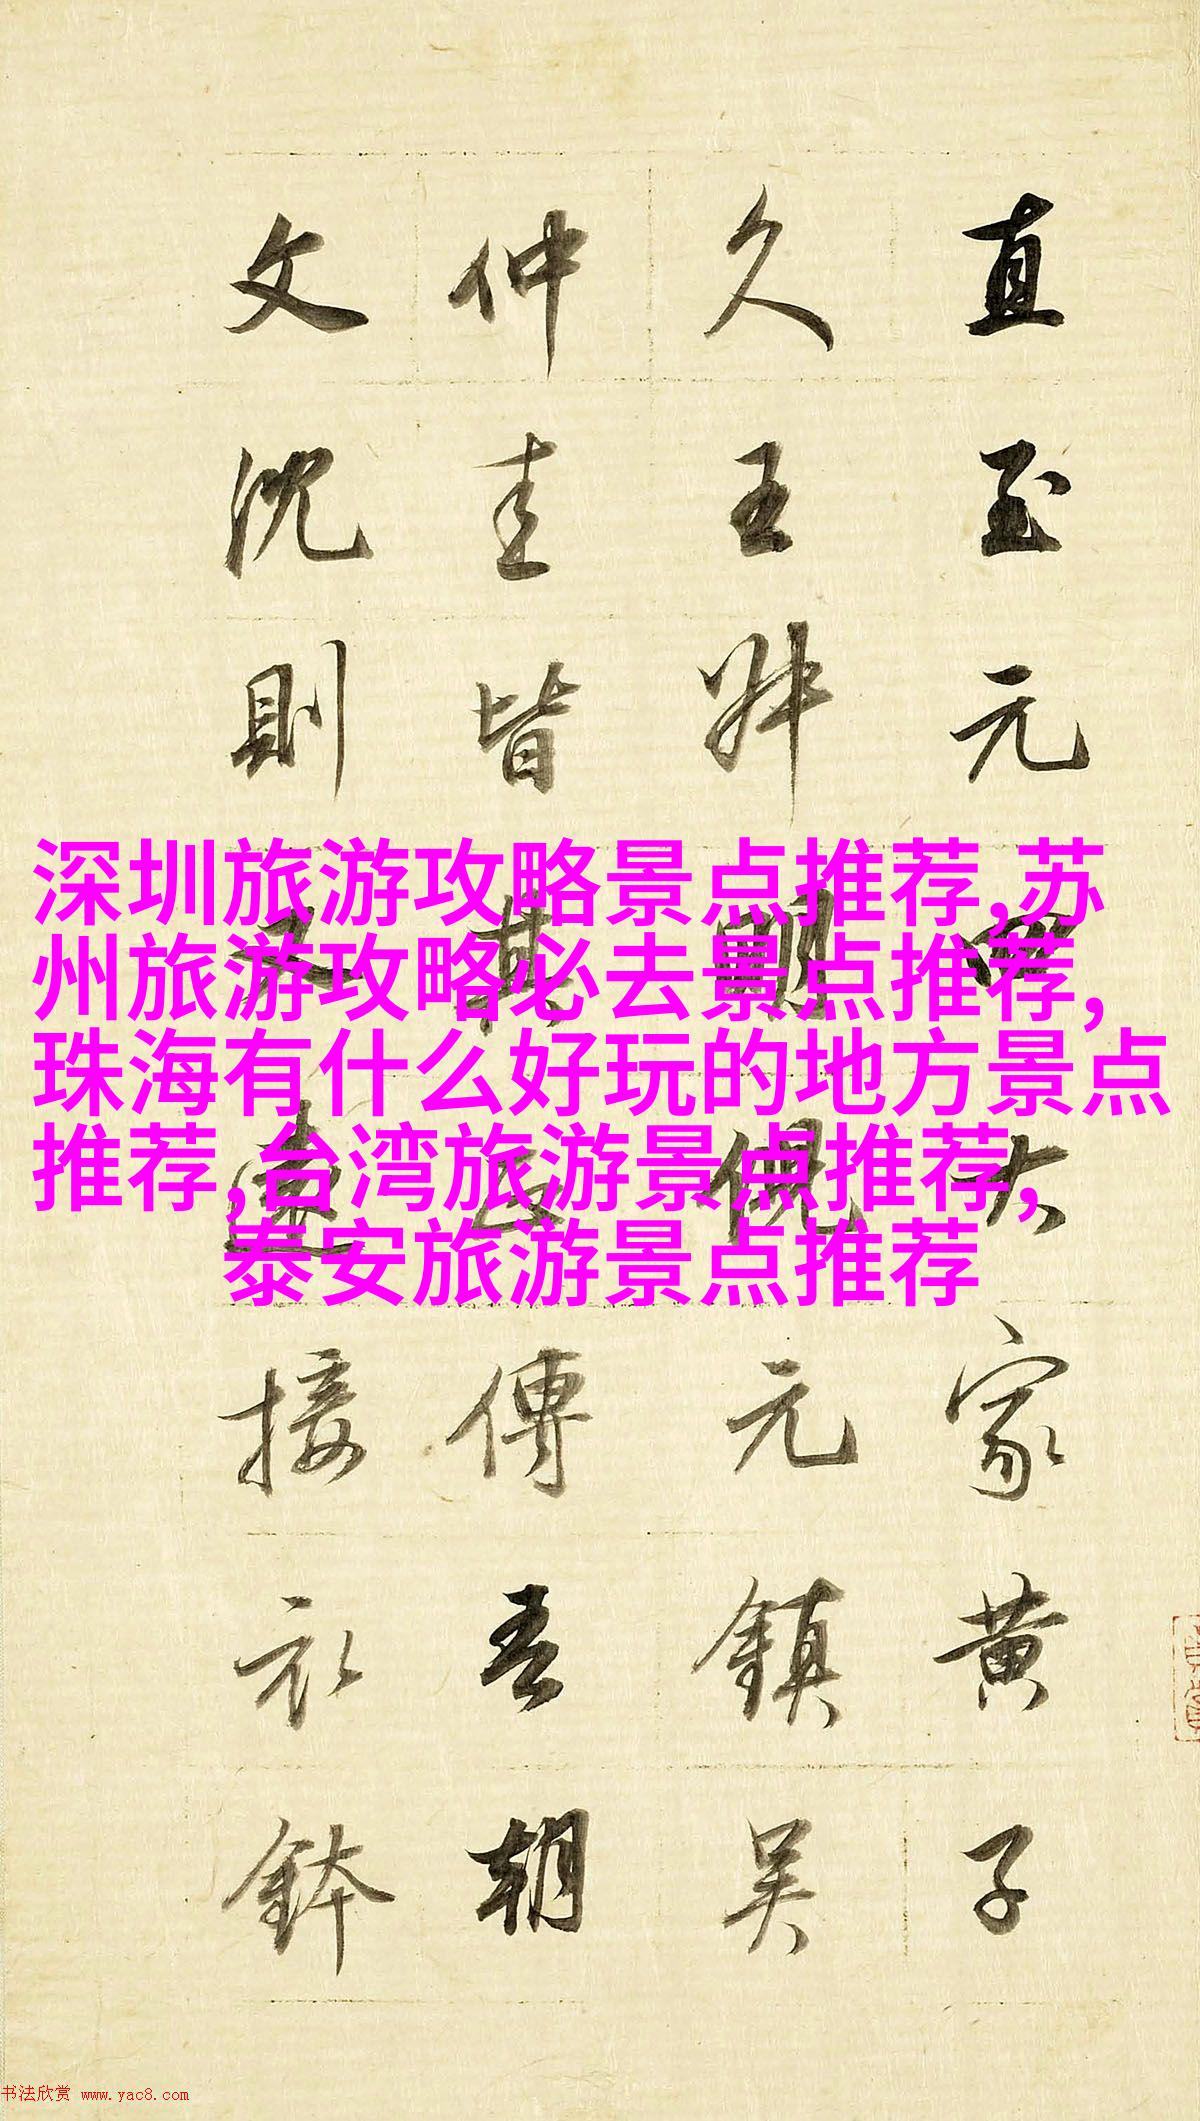 直至元四大家黃子
久王叔明倪元鎮吳
仲圭皆其正傳吾朝
文沈則又遠接衣鉢
深圳旅游攻略景点推荐,苏
州旅游攻略必去景点推荐,
珠海有什么好玩的地方景点
推荐,台湾旅游景点推荐,
泰安旅游景点推荐
书法欣赏 www.yac8.com